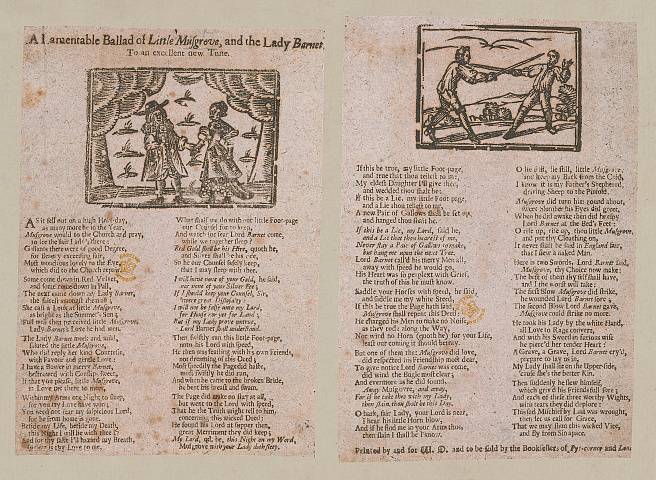 A Lamentable Ballad of Little Musgrove, and the Lady Barnet.
To an excellent new Tune.
AS it fell out on a high Holy-day,
as many more be in the Year,
Musgrove would to the Church and pray,
to see the fair Lady's there:
Gallants there were of good Degree,
for Beauty exceeding fair,
Most wondrous lovely to the Eye,
which did to the Church repair.
Some came down in Red Velvet,
and some came down in Pall,
The next came down my Lady Barnet,
the fairest amongst them all:
She cast a Look at little Musgrove,
as bright as the Summer's Sun;
Full well then perceived little Musgrove,
Lady Barnet's Love he had won.
The Lady Barnet meek and mild,
saluted the little Musgrove,
Who did reply her kind Courtesie,
with Favour and gentle Love:
I have a Bower in merry Barnet,
bestrowed with Cowslips sweet,
If that you please, little Musgrove,
in Love me there to meet,
Within my Arms one Night to sleep,
for you my Love have won,
You need not fear my suspicious Lord,
for he from home is gone.
Betide my Life, betide my Death,
this Night I will lie with thee;
And for thy sake I'll hazard my Breath,
so dear is thy Love to me.
What shall we do with our little Foot-page
our Counsel for to keep,
And watch for fear Lord Barnet come,
while we together sleep?
Red Gold shall be his Hire, quoth he,
and Silver shall be his Fee,
So he our Counsel safely keep,
that I may sleep with thee.
I will have none of your Gold, he said,
nor none of your Silver Fee;
If I should keep your Counsel, Sir,
'twere great Disloyalty:
I will not be false unto my Lord,
for House nor yet for Land;
But if my Lady prove untrue,
Lord Barnet shall understand.
Then swiftly ran this little Foot-page,
unto his Lord with speed,
He then was feasting with his own Friends,
not dreaming of this Deed;
Most speedily the Page did haste,
most swiftly he did run,
And when he came to the broken Bridge,
he bent his breast and swum.
The Page did make no stay at all,
but went to the Lord with speed,
That he the Truth might tell to him,
concerning this wicked Deed:
He found his Lord at supper then,
great Merriment they did keep;
My Lord, qd. he, this Night on my Word,
Musgrove with your Lady doth sleep.
If this be true, my little Foot-page,
and true that thou tellest to me,
My eldest Daughter I'll give thee,
and wedded thou shalt be:
If this be a Lie, my little Foot-page,
and a Lie thou tellest to me,
A new Pair of Gallows shall be set up,
and hanged thou shalt be.
If this be a Lie, my Lord, said he,
and a Lie that thou hearest of me,
Never stay a Pair of Gallows to make,
but hang me upon the next Tree.
Lord Barnet called his merry Men all,
away with speed he would go,
His Heart was so perplext with Grief,
the truth of this he must know.
Saddle your Horses with speed, he said,
and saddle me my white Steed,
If this be true the Page hath said,
Musgrove shall repent this Deed:
He charged his Men to make no Noise,
as they rode along the Way,
Nor wind no Horn (quoth he) for your Life,
least our coming it should betray.
But one of them that Musgrove did love,
and respected his Friendship most dear,
To give notice Lord Barnet was come,
did wind the Bugle most clear;
And evermore as he did sound,
Away Musgrove, and away,
For if he take thee with my Lady,
then slain thou shalt be this Day.
O hark, fair Lady, your Lord is near,
I hear his little Horn blow;
And if he find me in your Arms thus,
then slain I shall be I know.
O lie still, lie still, little Musgrove,
and keep my Back from the Cold,
I know it is my Father's Shepherd,
driving Sheep to the Pinfold.
Musgrove did turn him round about,
sweet slumber his Eyes did greet,
When he did awake then did he espy
Lord Barnet at the Bed's Feet:
O rise up, rise up, thou little Musgrove,
and put thy Cloathing on,
It never shall be said in England fair,
that I slew a naked Man.
Here is two Swords, Lord Barnet said,
Musgrove, thy Choice now make:
The best of them thy self shall have,
and I the worst will take:
The first Blow Musgrove did strike,
he wounded Lord Barnet sore;
The second Blow Lord Barnet gave,
Musgrove could strike no more.
He took his Lady by the white Hand,
all Love to Rage convert,
And with his Sword in furious wise
he pierc'd her tender Heart:
A Grave, a Grave, Lord Barnet cry'd,
prepare to lay us in,
My Lady shall lie on the Upper-side,
'cause she's the better Kin.
Then suddenly he slew himself,
which griev'd his Friends full sore;
And each of these three worthy Wights,
with tears they did deplore:
This sad Mischief by Lust was wrought,
then let us call for Grace,
That we may shun this wicked Vice,
and fly from Sin apace.
Printed by and for W. O. and to be sold by the Booksellers of Pye-corner and Lon